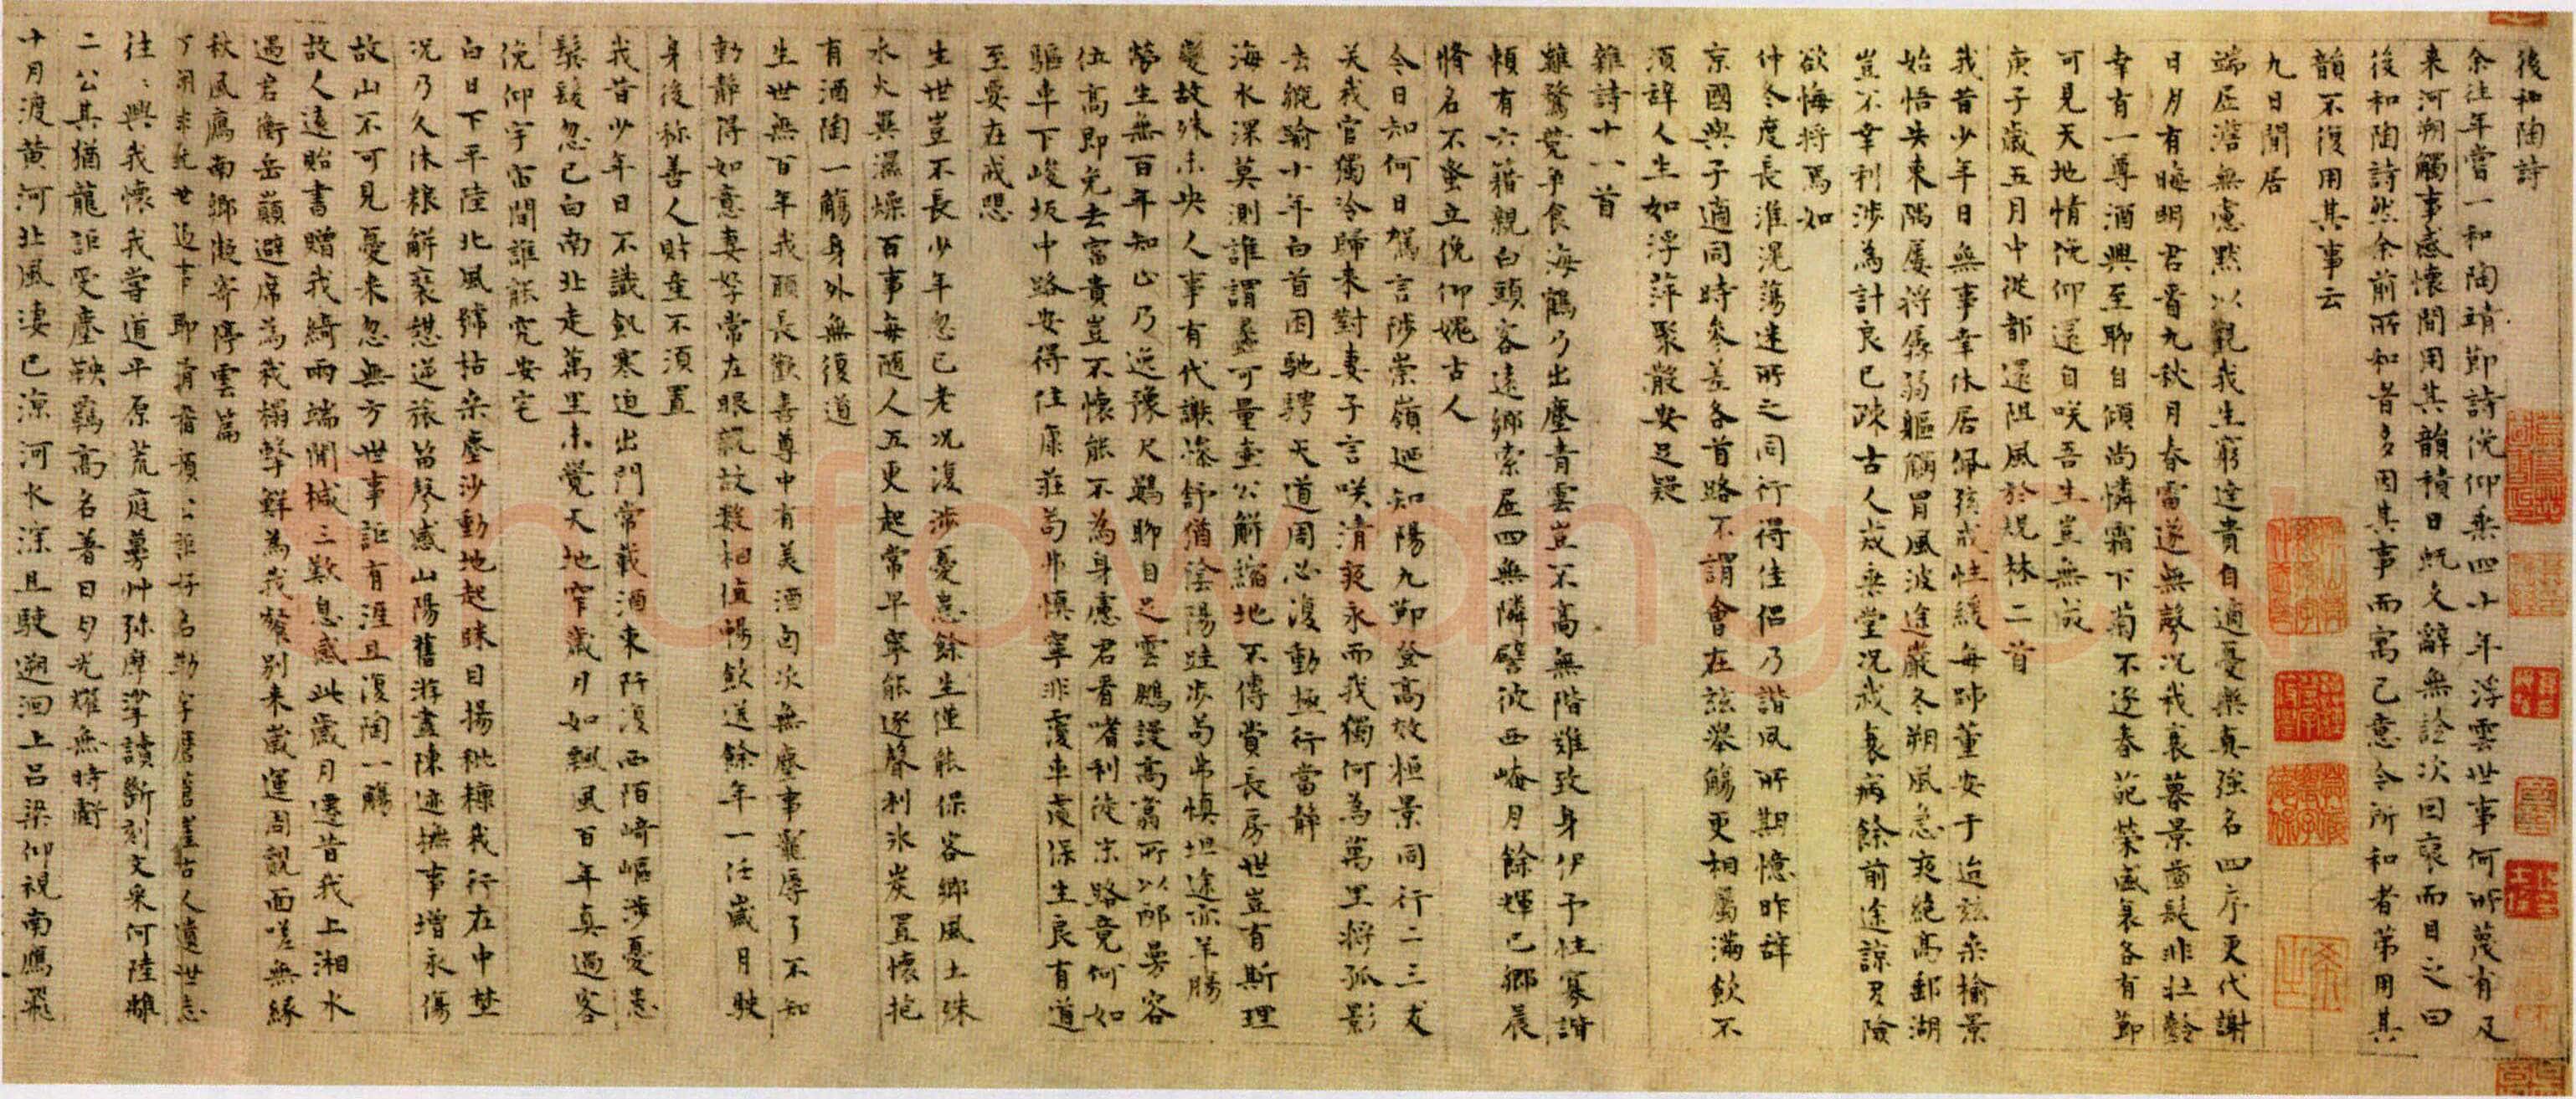 後和陶詩
余往年嘗一和陶靖節詩俛仰乘四十年浮雲世事何所蔑有及
来河朔觸事感懷間用其韻積日既久辭無詮次因裒而目之曰
後和陶詩然余前所和昔多因其事而寓己意今所和者第用其
韻不復用其事云
九日閒居
端居澹無慮默以觀我生窮達貴自適憂樂真強名四序更代謝
日月有晦明君看九秋月春雷遂無聲况我衰暮景齒髮非壮齡
幸有一尊酒興至聊自傾尚憐霜下菊不逐春葩榮盛衰各有節
可見天地情俛仰還自咲吾生豈無成
庚子歲五月中從都還阻風於規林二首
我昔少年日無事幸休居佩弦戒性緩每師董安于迨兹桑榆景
始悟失東隅屡将孱弱軀觸冒風波途嚴冬朔風急夜繞高郵湖
豈不幸利涉為計良已疎古人戒乗堂况我衰病餘前途諒多險
欲悔将焉如
仲冬度長淮滉蕩迷所之同行得佳侣乃諧夙所期憶昨辞
京國與子適同時參差各首路不謂會在兹舉觴更相屬滿飲不
須辞人生如浮萍聚散安足疑
雜詩十一首
雞鶩競争食海鶴乃出塵青雲豈不高無階難致身伊予性寡諧
頼有六籍親白頭客遠鄉索居四無隣譬彼西崦月餘輝已鄉晨
脩名不蚤立俛仰媿古人
今日知何日駕言陟崇嶺廼知陽九節登高效桓景同行二三友
关我官獨冷歸来對妻子言咲清夜永而我獨何為萬里将孤影
去縱踰十年白首困馳騁天道周必復動極行當静
海水深莫測誰謂蠡可量壷公解縮地不傳費長房世豈有斯理
變故殊未央人事有代謝慘舒猶陰陽跬步苟弗慎坦途亦羊腸
勞生無百年知止乃逸豫尺鷃聊自足雲鵬謾高翥所以邴曼容
位高即免去富貴豈不懷能不為身慮君看嗜利徒末路竟何如
驅車下峻坂中路安得住康莊苟弗慎寧非覆車處保生良有道
至要在戒懼
生世豈不長少年忽已老况復渉憂患餘生僅能保客鄉風土殊
水火異濕燥百事每随人五更起常早寧能逐聲利氷炭置懷抱
有酒陶一觴身外無復道
生世無百年我願長歡喜尊中有美酒匈次無塵事寵辱了不知
動静得如意妻孥常在眼親故數相值暢飲送餘年一任歲月駛
身後称善人貽童不須置
我昔少年日不識飢寒迫出門常載酒東阡復西陌崎嶇渉憂患
鬓髮忽已白南北走萬里未覺天地窄歲月如飄風百年真過客
俛仰宇宙間誰能究安宅
白日下平陸北風號枯桒塵沙動地起眯目揚粃糠我行在中埜
况乃久休粮解裘憇逆旅笛琴感山陽舊游盡陳迹撫事增永傷
故山不可見憂来忽無方世事詎有涯且復陶一觴
故人遠貽書贈我綺兩端開椷三歎息感此歲月遷昔我上湘水
過君衡岳巔避席為我榻擊鮮為我餐别来歲運周覿面嗟無緣
秋風鴈南鄉愬寄停雲篇
往往興我懷我嘗道平原荒庭蓦艸弥摩挲讀斷刻文采何陸離
二公其猶龍詎受塵鞅羈高名著日月光耀無時虧
十月渡黄河北風淒已凉河水深且駛遡洄上吕梁仰視南鴈飛